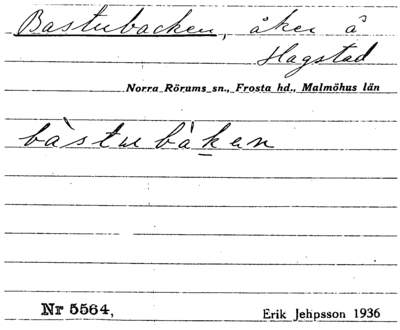 Bastubacken, åker å
Hagstad
Norra Rörums sn., Frosta hd., Malmöhus län
bàstubàkan
Nr 5564,
Erik Jehpsson 1936